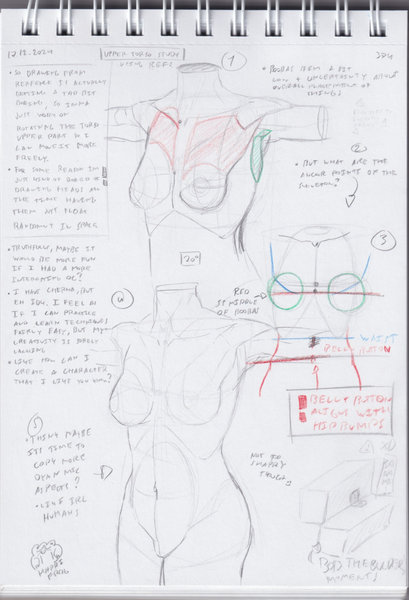 12.12.2024
UPPER TORSO STUDY
USING REFS
1
304
• SO DRAWING FROM
REFERENCE IS ACTUALLY
GETTING A TAD BIT
BORING, SO IMMA
JUST WORK ON
ROTATING THE TORSO
UPPER PART SO I
CAN MOVE IT MORE
FREELY.
• FOR SOME REASON IM
JUST KIND OF BORED OF
DRAWING HEADS ALL
THE TIME HAVING
THEM JUST FLOAT
RANDOMLY IN SPACE
• TRUTHFULLY, MAYBE IT
WOULD BE MORE FUN
IF I HAD A MORE
INTERESTING OC?
• I HAVE CHERNO, BUT
EH IDK. I FEEL AS
IF I CAN PRACTICE
AND LEARN TECHNIQUES
FAIRLY EASY, BUT MY
CREATIVITY IS
LACKING
• LIKE HOW CAN I
CREATE A CHARACTER
THAT I LIKE YOU KNOW?
• BOOBAS BEEN A BIT
LOW & UNCERTAINTY ABOUT
OVERALL PLACEMENT OF
THINGS
2
• BUT WHAT ARE THE
ANCHOR POINTS OF THE
SKELETON?
3
RED
IS MIDDLE
OF BOOBAS
WAIST
BELLY BUTTON
BELLY BUTTON
ALIGNS WITH
HIP BUMPS
20°
4
5
• THINK MAYBE
ITS TIME TO
COPY MORE
DYNAMIC
ASPECTS?
• LIKE IRL
HUMANS
NOT SO
SHABBY
THOUGH
XD
HAPPI
FROG
BOB THE BUILDER
MOMENTS